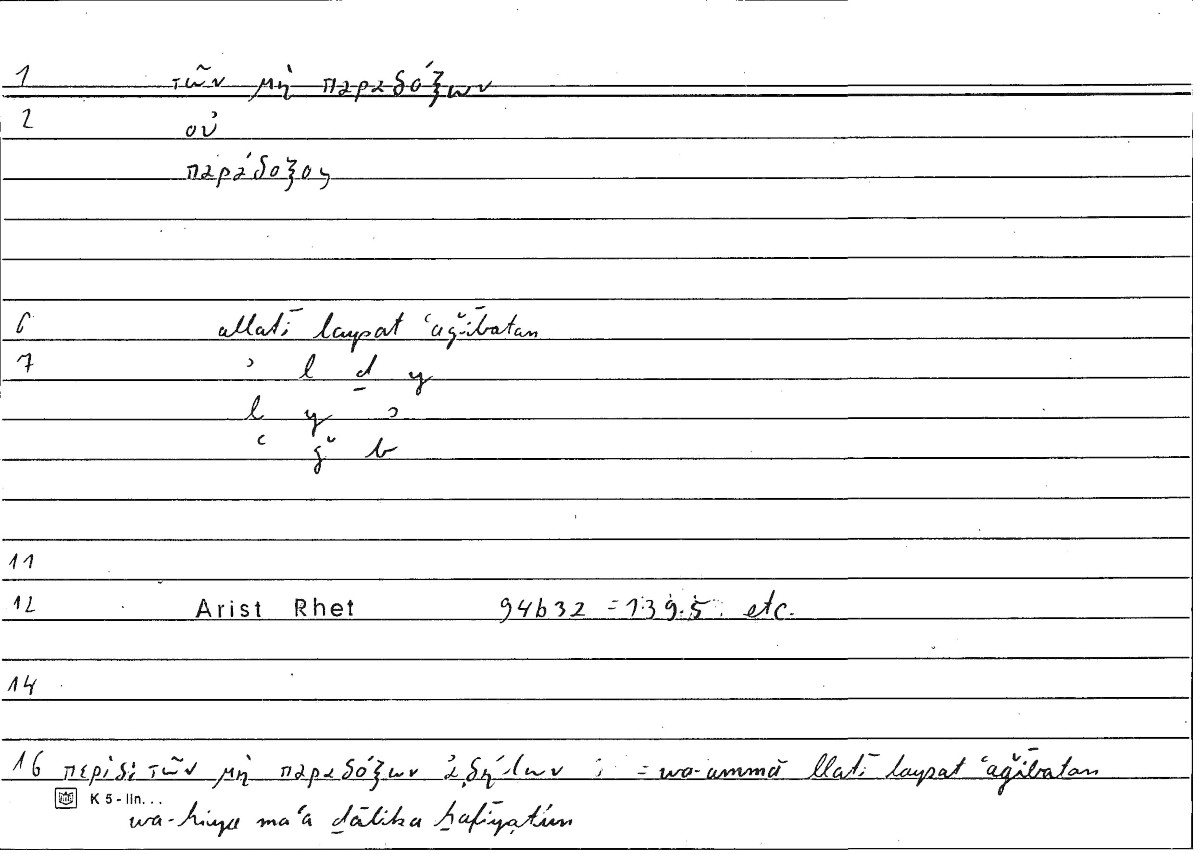 1 τῶν μὴ παραδόξων
2 οὐ
παράδοξος
6 allatī laysat ʿaǧībatan
7 ʾ l ḏ y
l y s
ʿ ǧ b
11
12 Arist Rhet 94b32 = 139.5 etc.
14
16 περὶ δὲ τῶν μὴ παραδόξων ἀδήλων δὲ = wa-ammā llatī laysat ʿaǧībatan
K 5-lin...
wa-hiya maʿa ḏālika ḫafīyatun